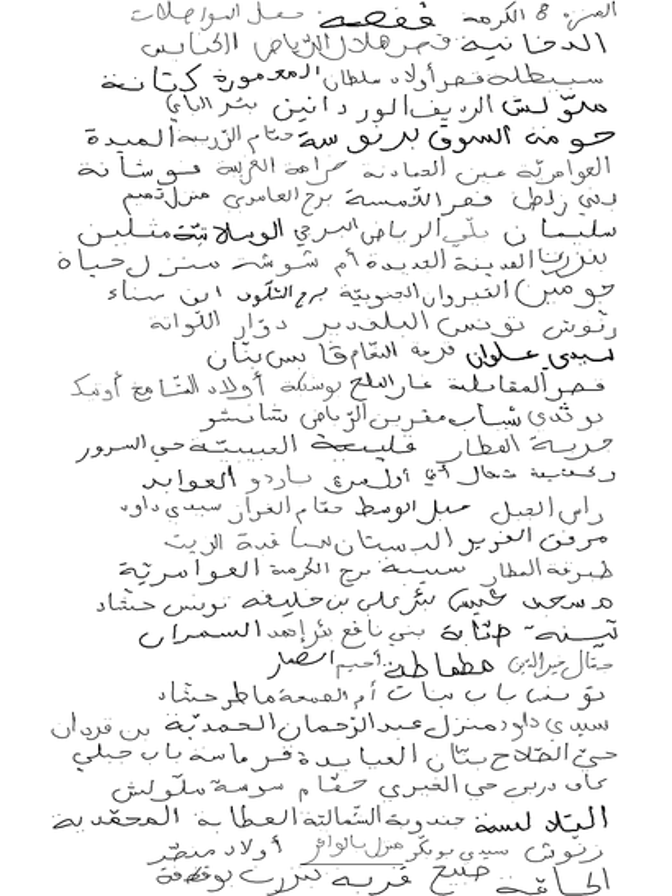 المنزه 8 الكرمة قفصة معمل المواصلات
الدخانية قصر هلال الرياض الكنايس
سبيطلة قصر أولاد سلطان المعمورة كتانة
ملّولش الريف الوردانين بئر الباي
حومة السوق بدنوسة حمّام الزريبة الميدة
العوامريّة عين الحمادنة مراهة الغربية فوشانة
بني زلطن قصر اللّمسة برج العامري منزل تميم
سليمان ملّي الرياض المرجي الوسلاتيّة متلين
بنزرت المدينة الجديدة أم شوشة منزل حياة
جومين القيروان الجنوبيّة برج التلّود ابن سناء
زنّوش تونس البلفدير دوّار اللّواتة
سيدي علوان قرية النغّام قابس بنّان
قصر المقابلة غار الملح بوسكة أولاد الشامخ
شباب مقرين الرّياض شانشو
جربة العطار قليبية الحبيبيّة حي السرور
شمال أول مرق باردو العوابد
راس الجبل جبل الوسط حمّام الغزاز سيدي داود
مرفق الغرير البستان ساقية الزيت
طبرقة المطار سبيبة برج الكرمة العوامريّة
مسعد عيش بئر علي بن خليفة تونس حشّاد
بني نافع بئر أحمد السمران
حفّال خير الدين مطماطة
تونس باب بنات أم الصمعة ماطر حشّاد
سيدي داود منزل عبد الرّحمان الحمديّة بن قردان
حيّ الفلاح بنّان العبايدة قرماسة باب جبلي
حي الخيري حمّام سوسة ملّولش
جندوبة الشّمالية العطاية المحمّدية
زنّوش سيدي بوبكر منزل بالوافر أولاد منصّر
قرية بنزرت